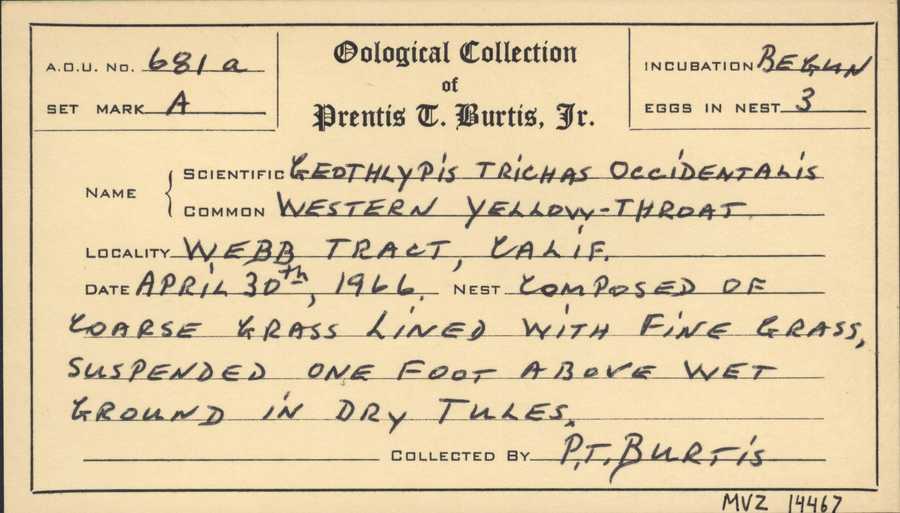 A.O.U. No. 681a
Set Mark A
Oological Collection
of
Prentis T. Burtis, Jr.
Incubation Begun
Eggs in Nest 3
Name { Scientific Geothlypis Trichas Occidentalis
Common Western Yellow-Throat
Locality Webb Tract, Calif.
Date April 30th, 1966. Nest Composed of
Coarse Grass Lined With Fine Grass,
Suspended One Foot Above Wet
Ground in Dry Tules.
Collected By P.T. Burtis
MVZ 14467